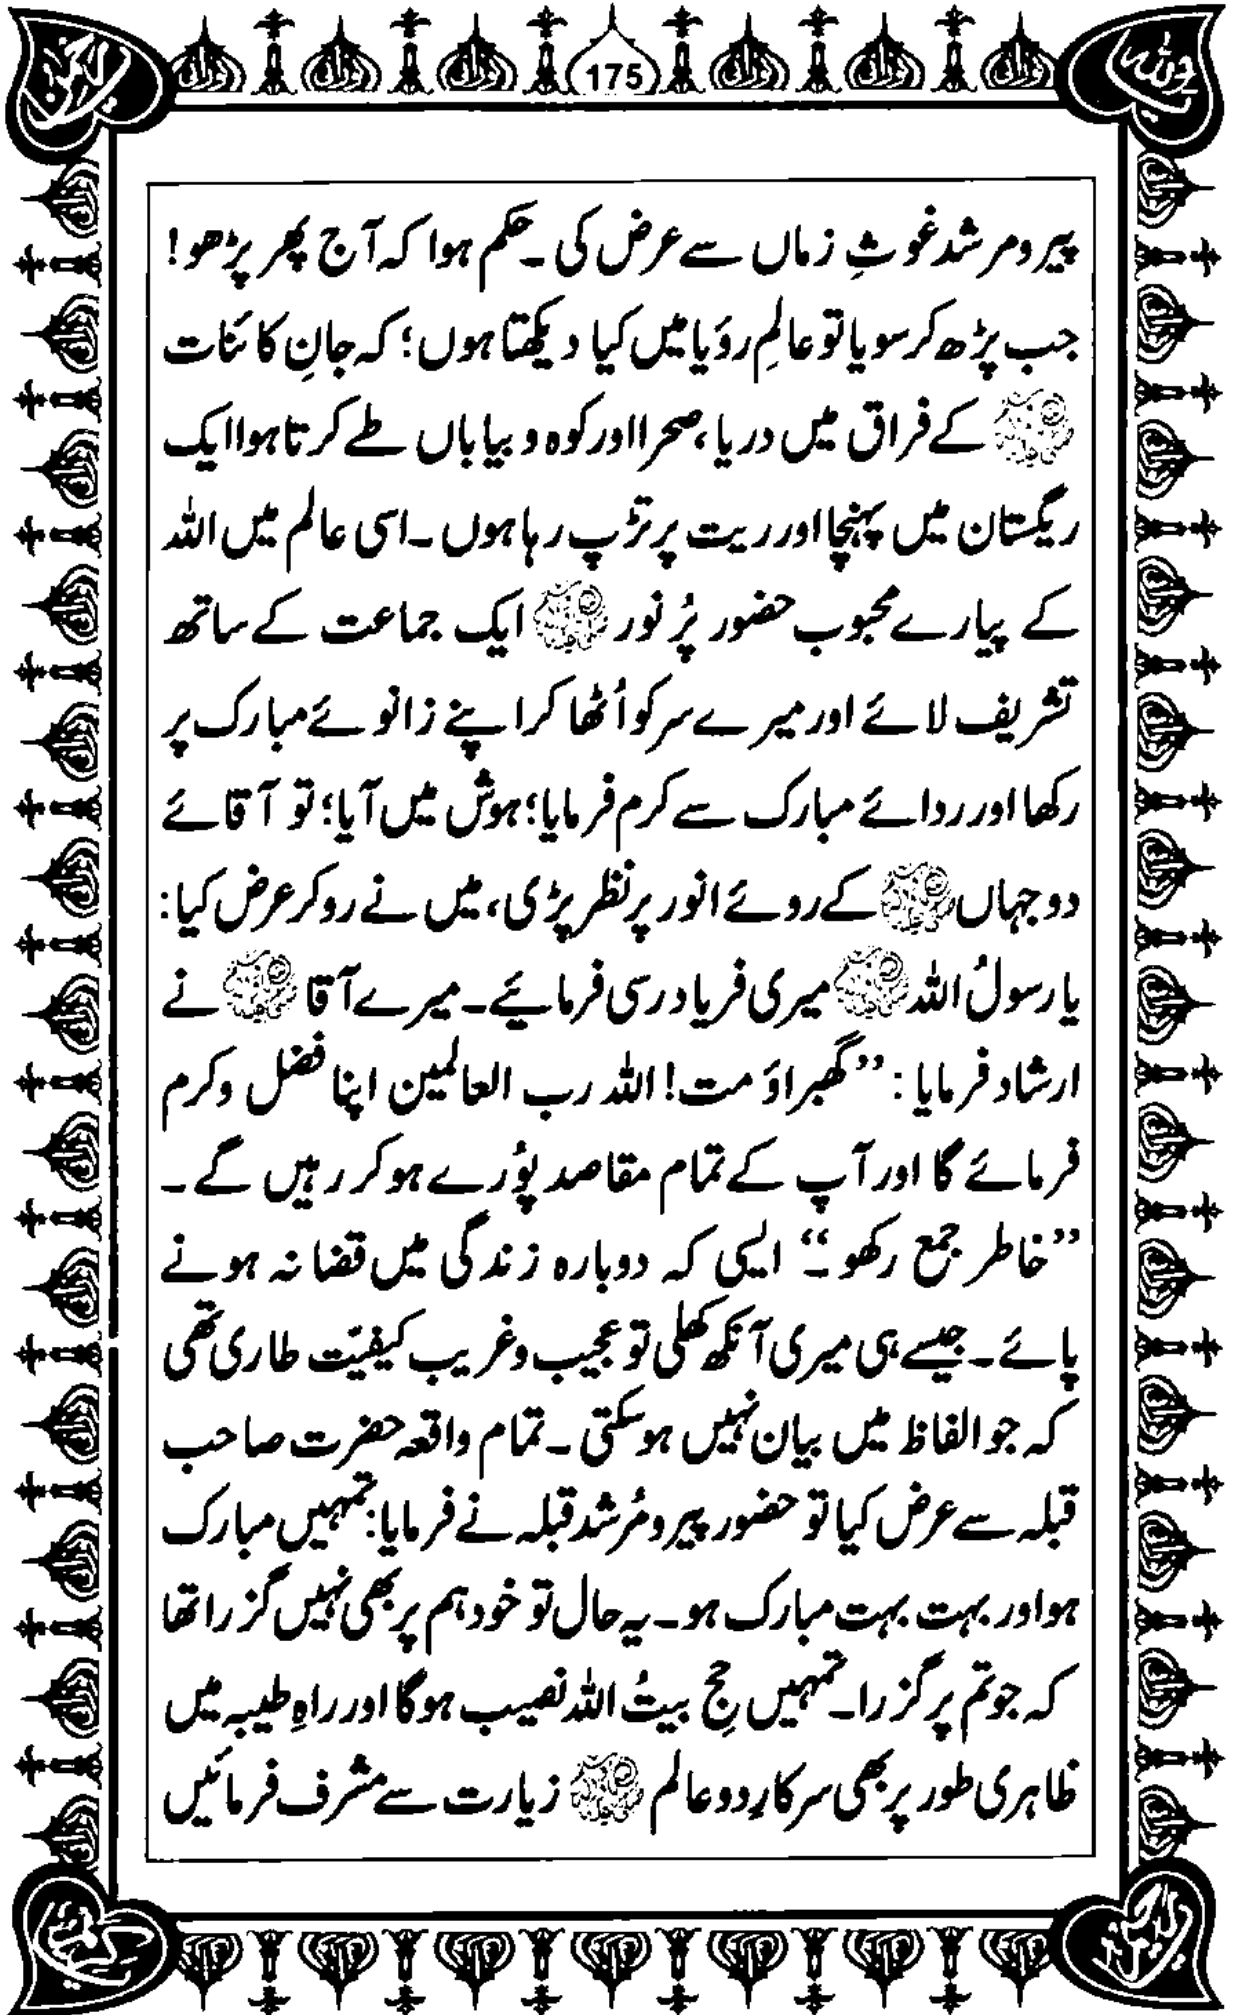 175
پیر و مرشد غوثِ زماں سے عرض کی ۔ حکم ہوا کہ آج پھر پڑھو!
جب پڑھ کر سویا تو عالمِ رؤیا میں کیا دیکھتا ہوں؛ کہ جانِ کائنات
ﷺ کے فراق میں دریا، صحرا اور کوہ و بیاباں طے کرتا ہوا ایک
ریگستان میں پہنچا اور ریت پر تڑپ رہا ہوں ۔ اسی عالم میں اللہ
کے پیارے محبوب حضور پُر نور ﷺ ایک جماعت کے ساتھ
تشریف لائے اور میرے سر کو اُٹھا کر اپنے زانوئے مبارک پر
رکھا اور ردائے مبارک سے کرم فرمایا؛ ہوش میں آیا؛ تو آقائے
دو جہاں ﷺ کے روئے انور پر نظر پڑی، میں نے رو کر عرض کیا:
یا رسولُ اللہ ﷺ میری فریاد رسی فرمائیے ۔ میرے آقا ﷺ نے
ارشاد فرمایا: ”گھبراؤ مت! اللہ رب العالمین اپنا فضل و کرم
فرمائے گا اور آپ کے تمام مقاصد پوُرے ہو کر رہیں گے ۔
”خاطر جمع رکھو ۔“ ایسی کہ دوبارہ زندگی میں قضا نہ ہونے
پائے ۔ جیسے ہی میری آنکھ کھلی تو عجیب و غریب کیفیّت طاری تھی
کہ جو الفاظ میں بیان نہیں ہو سکتی ۔ تمام واقعہ حضرت صاحب
قبلہ سے عرض کیا تو حضور پیر و مُرشد قبلہ نے فرمایا: تمہیں مبارک
ہو اور بہت بہت مبارک ہو ۔ یہ حال تو خود ہم پر بھی نہیں گزرا تھا
کہ جو تم پر گزرا ۔ تمہیں حجِ بیتُ اللہ نصیب ہو گا اور راہِ طیبہ میں
ظاہری طور پر بھی سرکارِ دو عالم ﷺ زیارت سے مشرف فرمائیں